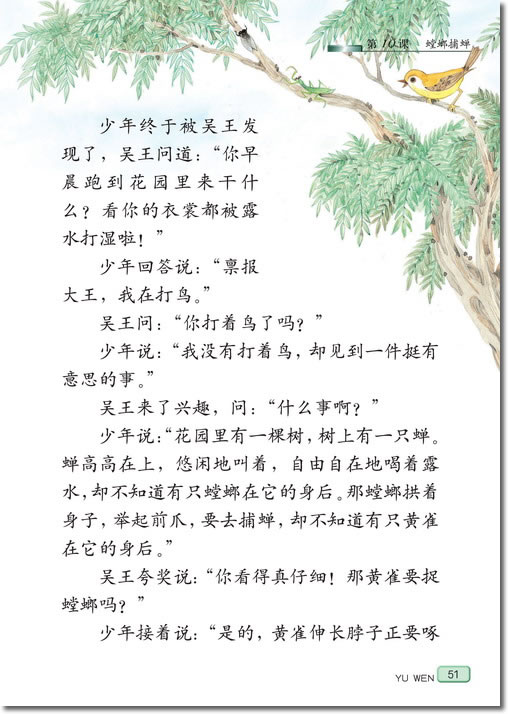 第10课 螳螂捕蝉
少年终于被吴王发
现了，吴王问道：“你早
晨跑到花园里来干什
么？看你的衣裳都被露
水打湿啦！”
少年回答说：“禀报
大王，我在打鸟。”
吴王问：“你打着鸟了吗？”
少年说：“我没有打着鸟，却见到一件挺有
意思的事。”
吴王来了兴趣，问：“什么事啊？”
少年说：“花园里有一棵树，树上有一只蝉。
蝉高高在上，悠闲地叫着，自由自在地喝着露
水，却不知道有只螳螂在它的身后。那螳螂拱着
身子，举起前爪，要去捕蝉，却不知道有只黄雀
在它的身后。”
吴王夸奖说：“你看得真仔细！那黄雀要捉
螳螂吗？”
少年接着说：“是的，黄雀伸长脖子正要啄
YU WEN 51